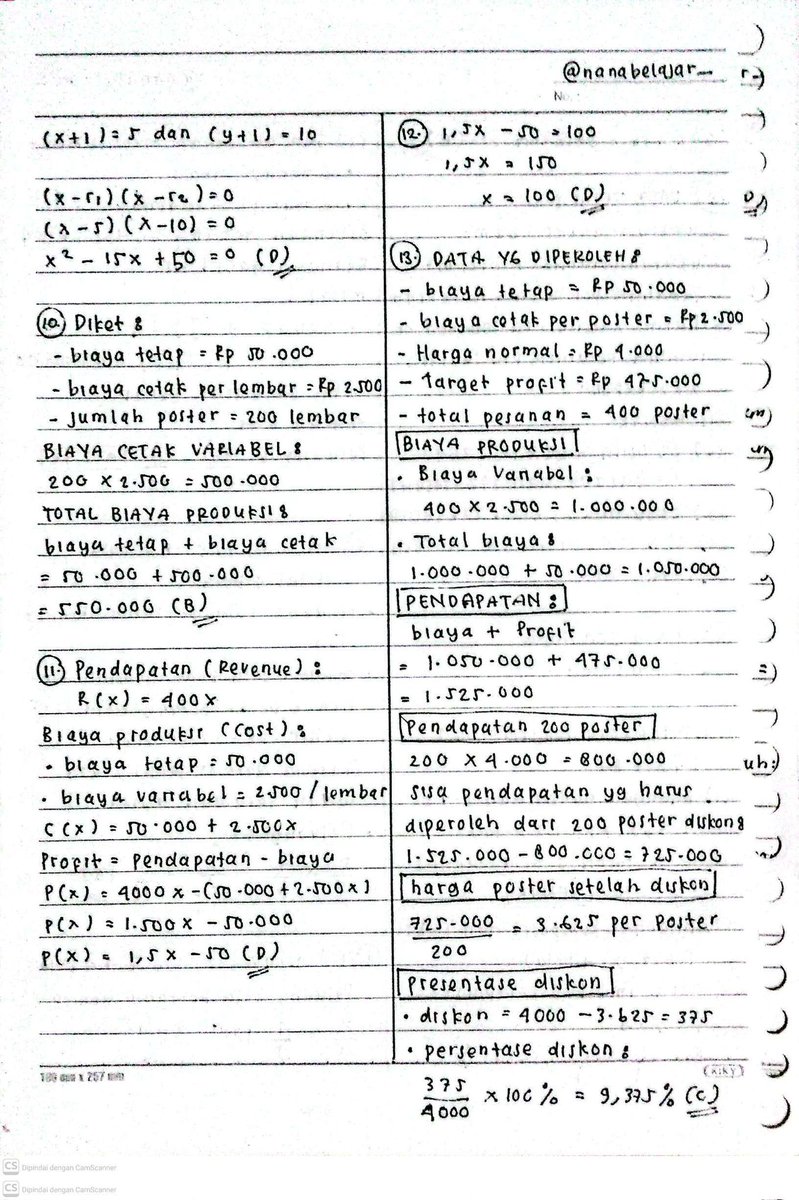 @nanabelajar_
No.
(x+1) = 5 dan (y+1) = 10
(x-r1)(x-r2) = 0
(x-5)(x-10) = 0
x² - 15x + 50 = 0 (D)
10.) Diket :
- biaya tetap = Rp 50.000
- biaya cetak per lembar = Rp 2.500
- Jumlah poster = 200 lembar
BIAYA CETAK VARIABEL :
200 x 2.500 = 500.000
TOTAL BIAYA PRODUKSI :
biaya tetap + biaya cetak
= 50.000 + 500.000
= 550.000 (B)
11.) Pendapatan (Revenue) :
R(x) = 400x
Biaya produksi (Cost) :
• biaya tetap = 50.000
• biaya variabel = 2500 / lembar
C(x) = 50.000 + 2.500x
Profit = pendapatan - biaya
P(x) = 4000x - (50.000 + 2.500x)
P(x) = 1.500x - 50.000
P(x) = 1,5x - 50 (D)
12.) 1,5x - 50 = 100
1,5x = 150
x = 100 (D)
13.) DATA YG DIPEROLEH :
- biaya tetap = Rp 50.000
- biaya cetak per poster = Rp 2.500
- Harga normal = Rp 4.000
- Target profit = Rp 475.000
- total pesanan = 400 poster
BIAYA PRODUKSI
• Biaya Variabel :
400 x 2.500 = 1.000.000
• Total biaya :
1.000.000 + 50.000 = 1.050.000
PENDAPATAN :
biaya + Profit
= 1.050.000 + 475.000
= 1.525.000
Pendapatan 200 poster
200 x 4.000 = 800.000
sisa pendapatan yg harus
diperoleh dari 200 poster diskon :
1.525.000 - 800.000 = 725.000
harga poster setelah diskon
725.000 = 3.625 per poster
200
presentase diskon
• diskon = 4000 - 3.625 = 375
• persentase diskon :
375 x 100% = 9,375% (C)
4000
(KIKY)
CS Dipindai dengan CamScanner
CS Dipindai dengan CamScanner